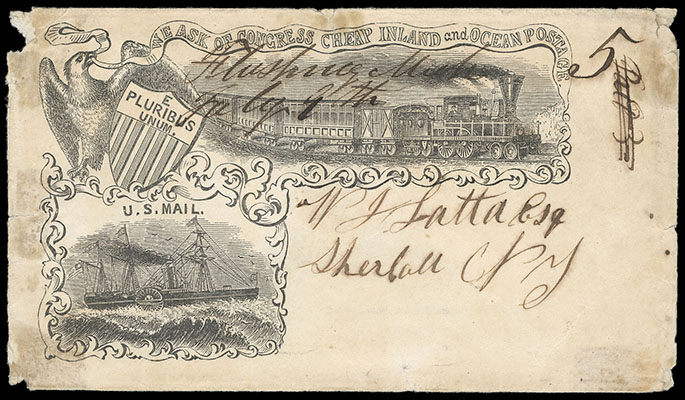 WE ASK OF CONGRESS CHEAP INLAND and OCEAN POSTAGE.
Flushing Mich
9th
5
E
PLURIBUS
UNUM.
U.S. MAIL.
N J Latta Esq
Sherball N Y